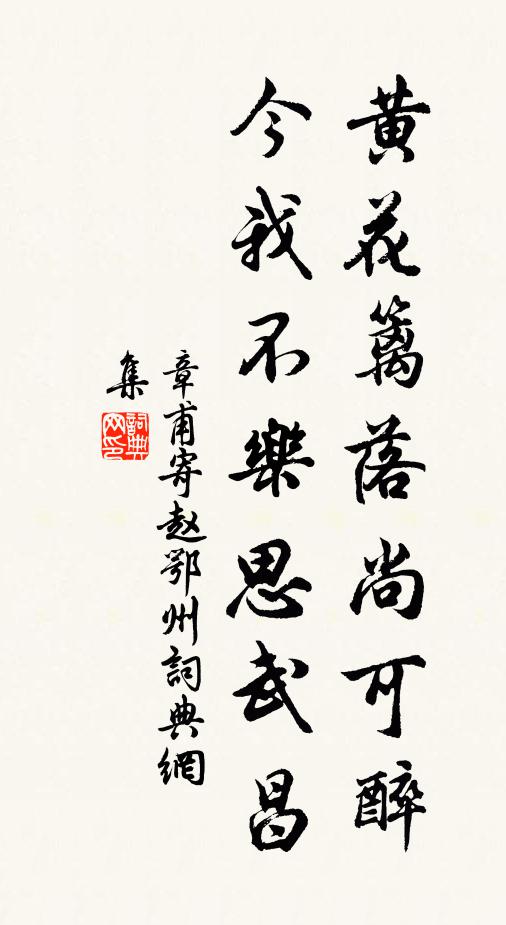 黄花籬落尚可醉
今我不樂思武昌
章甫寄赵鄂州詞典網
集
詞典網印